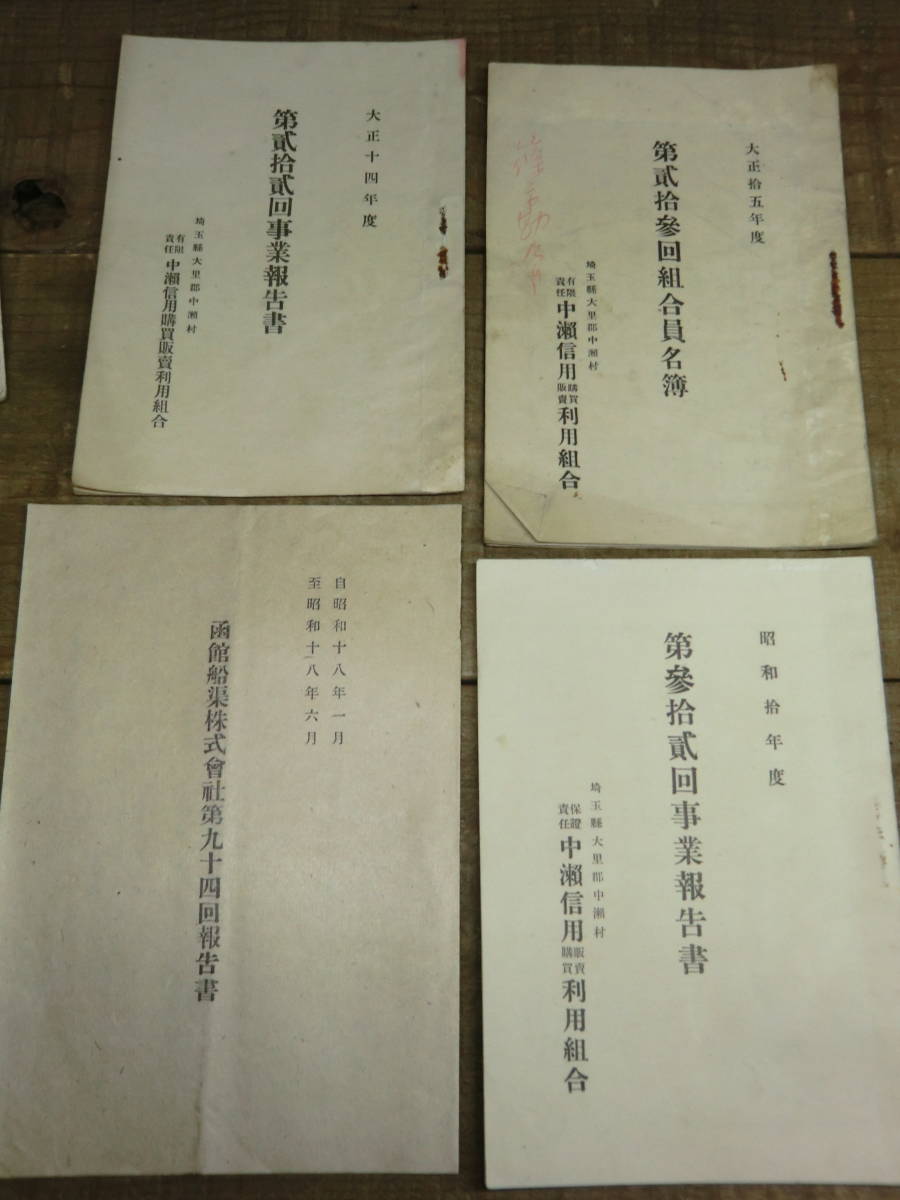 大正十四年度
第貳拾貳回事業報告書
埼玉縣大里郡中瀨村
有限責任 中瀨信用購買販賣利用組合
大正拾五年度
第貳拾參回組合員名簿
埼玉縣大里郡中瀨村
有限責任 中瀨信用購買販賣利用組合
自昭和十八年一月
至昭和十八年六月
函館船渠株式會社第九十四回報告書
昭和拾年度
第參拾貳回事業報告書
埼玉縣大里郡中瀨村
保證責任 中瀨信用販賣購買利用組合